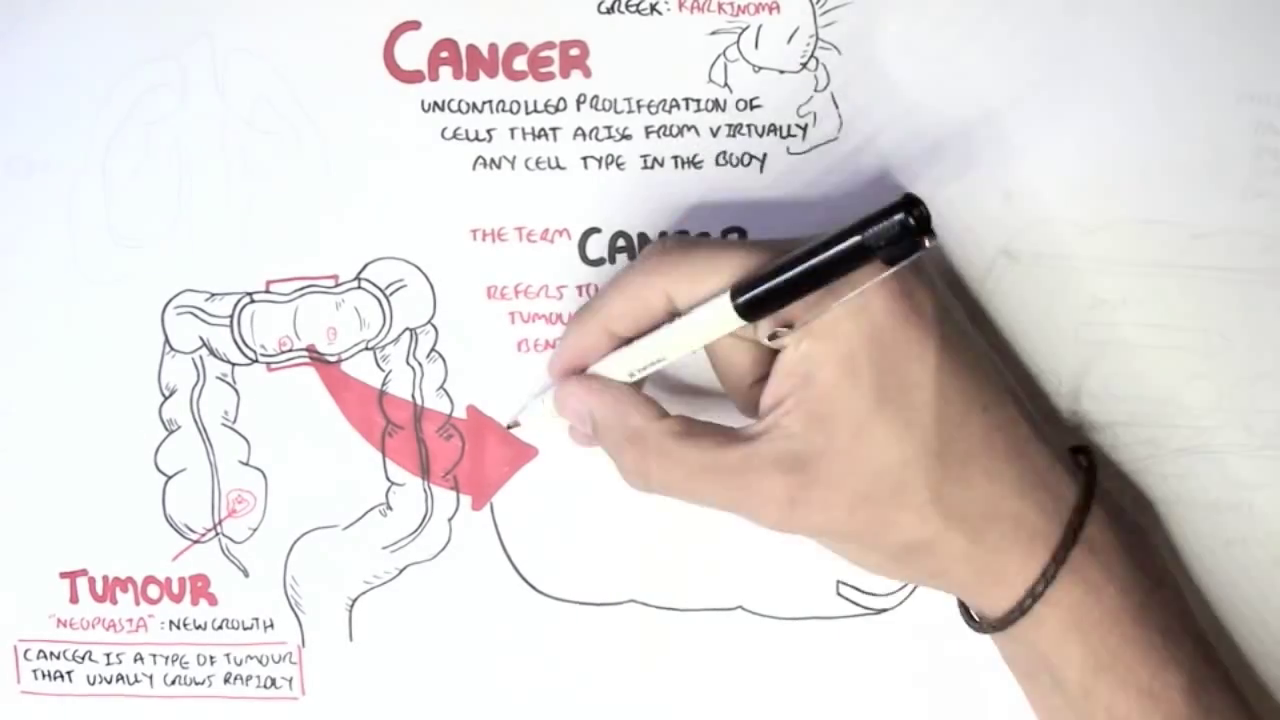 GREEK: KARKINOMA
CANCER
UNCONTROLLED PROLIFERATION OF
CELLS THAT ARISE FROM VIRTUALLY
ANY CELL TYPE IN THE BODY
THE TERM CANCER
REFERS TO
TUMOU
BEN
TUMOUR
"NEOPLASIA" : NEW GROWTH
CANCER IS A TYPE OF TUMOUR
THAT USUALLY GROWS RAPIDLY